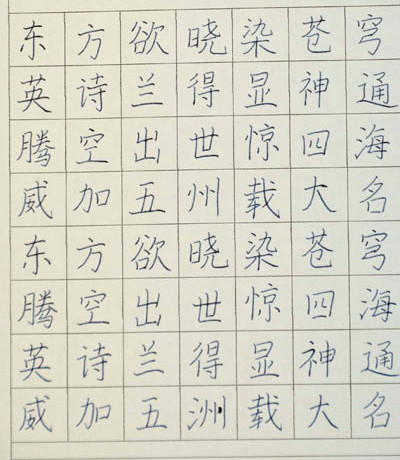 东方欲晓染苍穹
英诗兰得显神通
腾空出世惊四海
威加五州载大名
东方欲晓染苍穹
腾空出世惊四海
英诗兰得显神通
威加五洲载大名